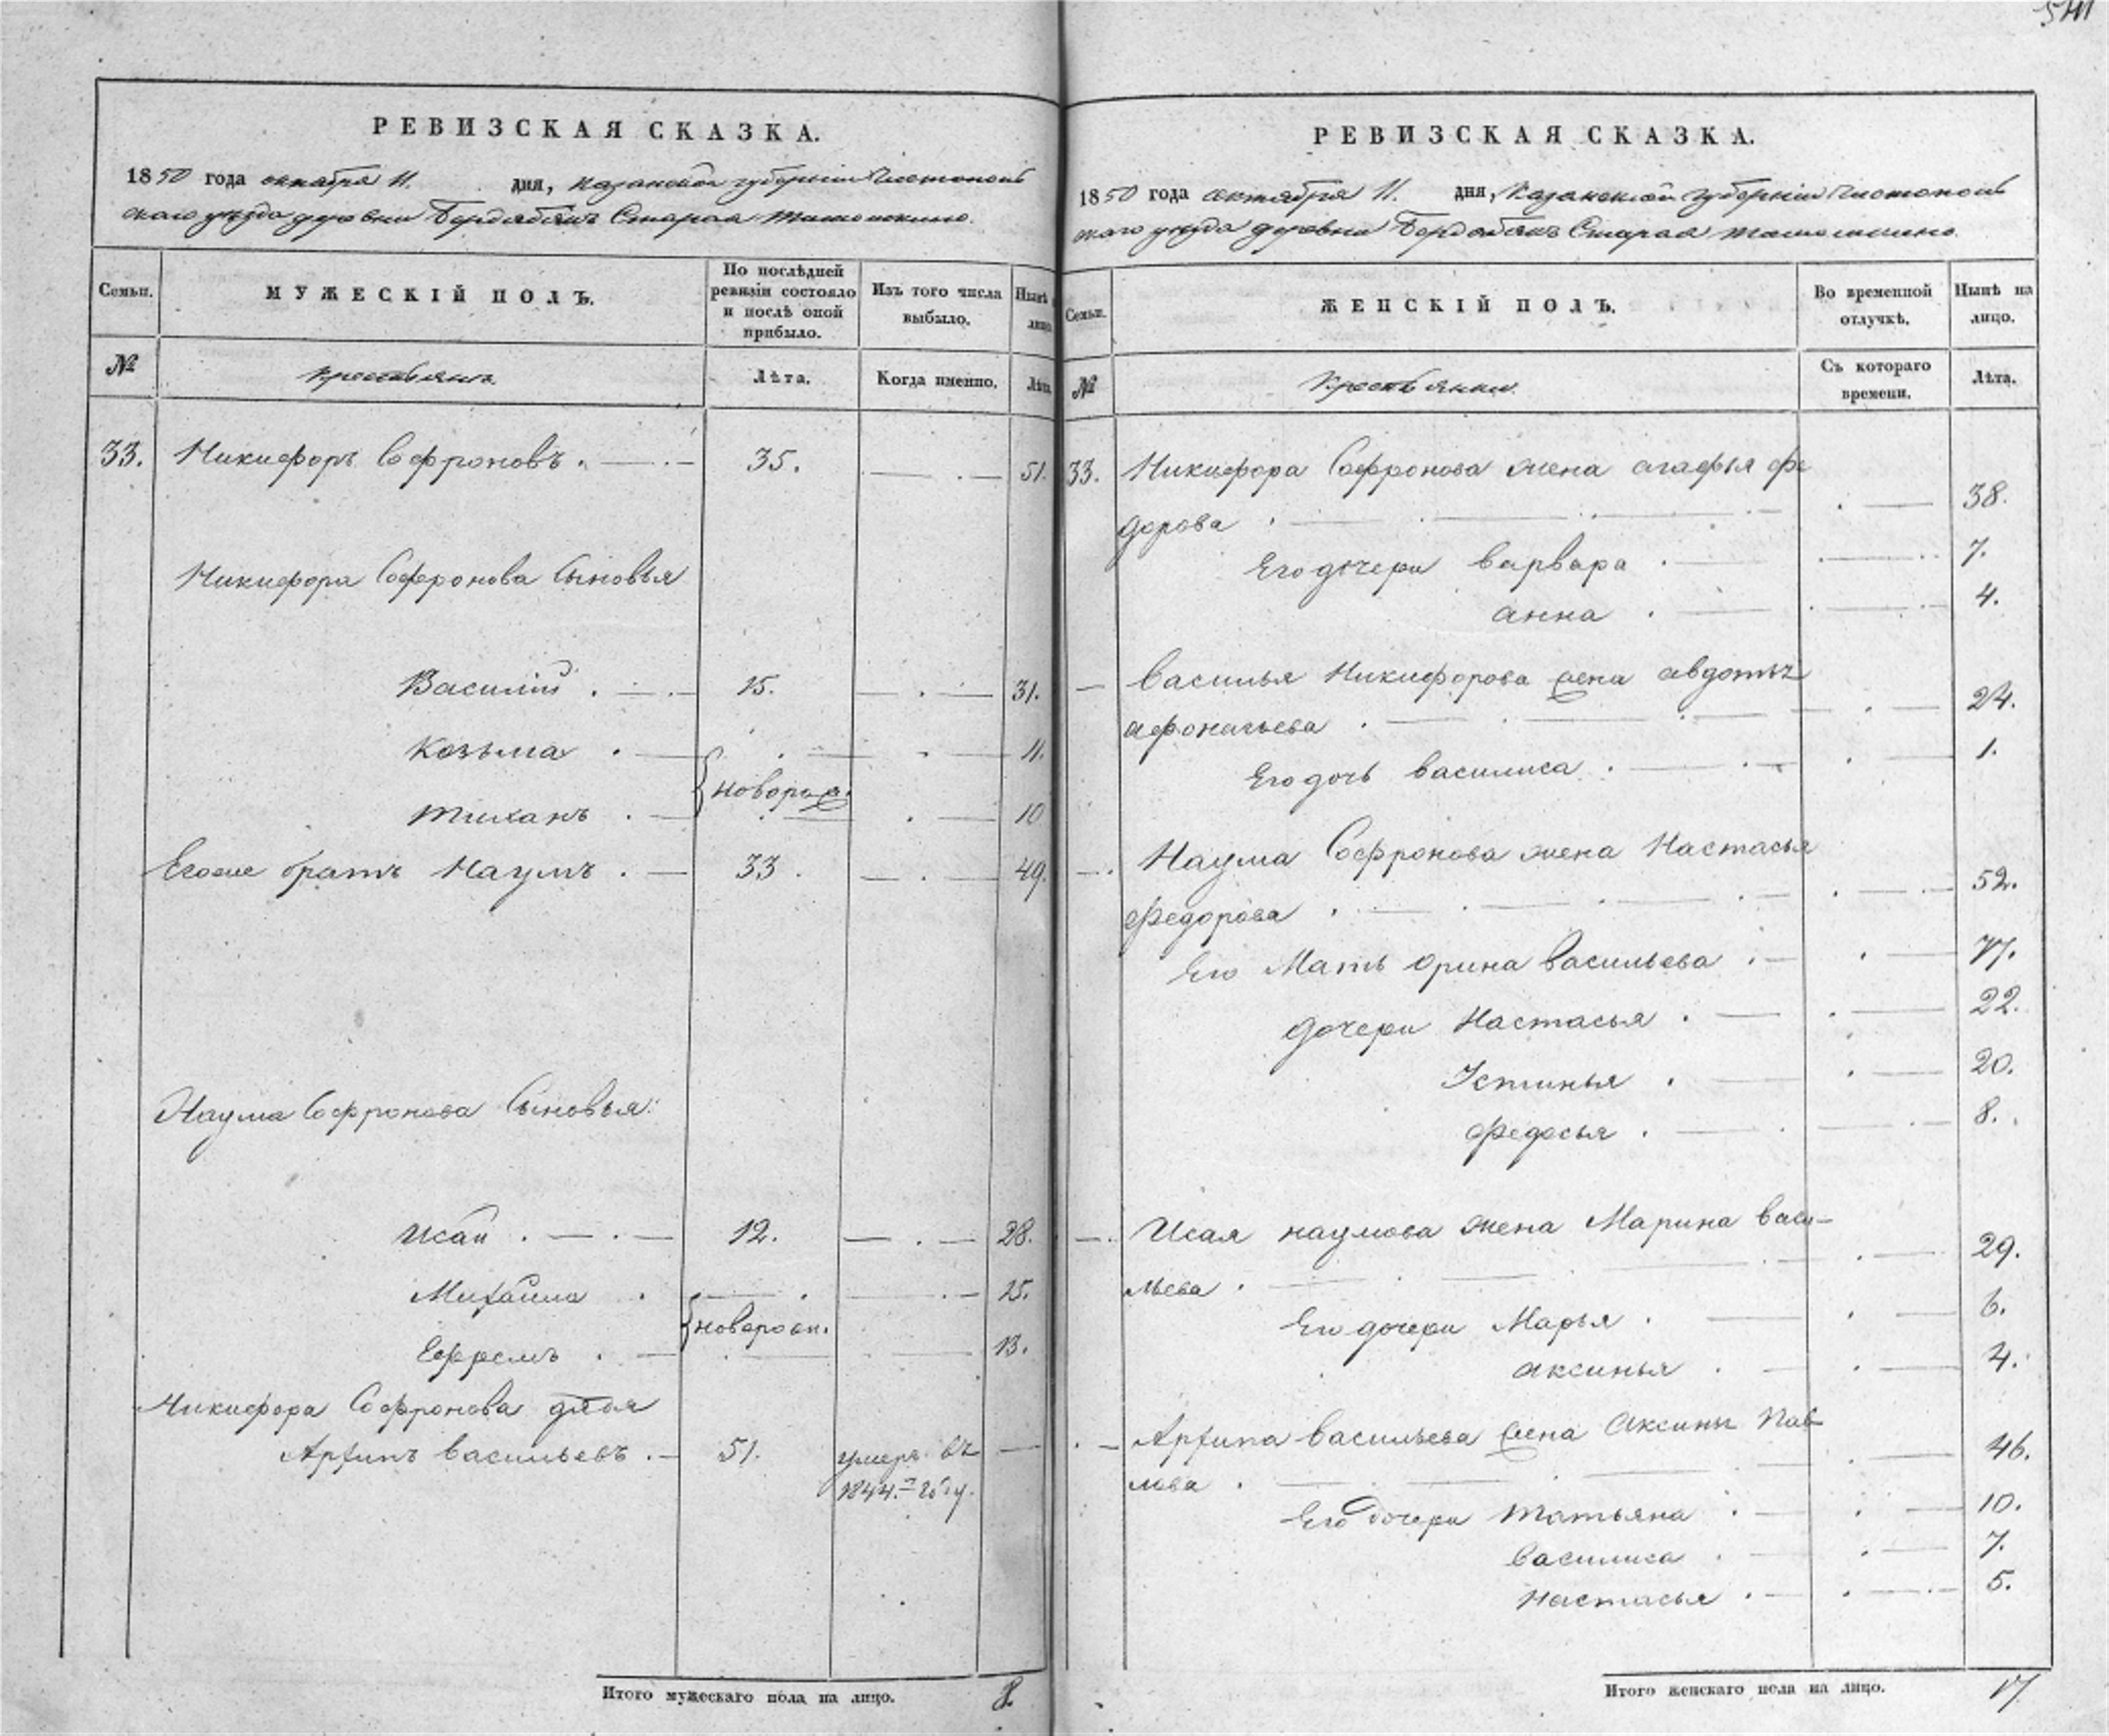 РЕВИЗСКАЯ СКАЗКА.
1850 года октября 11. дня, Казанской губернии Чистополь
скаго уезда деревни Старая
Семьи.
МУЖЕСКІЙ ПОЛЪ.
По послѣдней
ревизіи состояло
и послѣ оной
прибыло.
Изъ того числа
выбыло.
Нынѣ
лицо
№
Крестьянъ.
Лѣта.
Когда именно.
Лѣта
33. Никифоръ Софроновъ. 35. 51.
Никифора Софронова Сыновья
Василій. 15. 31.
Козьма. 11.
новорож.
Тиханъ. 10
Егоже братъ Наумъ. 33. 49.
Наума Софронова Сыновья:
Исай. 12. 28.
Михайла. 15.
новорож.
Ефремъ. 13.
Никифора Софронова дядя
Архипъ Васильевъ. 51. умеръ въ
1844. году.
Итого мужескаго пола на лицо. 8.
РЕВИЗСКАЯ СКАЗКА.
1850 года октября 11. дня, Казанской губерніи Чистополь
скаго уезда деревни Старая
Семьи.
ЖЕНСКІЙ ПОЛЪ.
Во временной
отлучкѣ.
Нынѣ на
лицо.
№
Крестьянки.
Съ котораго
времени.
Лѣта.
33. Никифора Софронова жена агафья фе
дорова. 38.
Его дочери варвара. 7.
анна. 4.
Василья Никифорова жена авдотья
афонасьева. 24.
Его дочь василиса. 1.
Наума Софронова жена Настасья
Федорова. 52.
Его Мать Орина Васильева. 77.
дочери Настасья. 22.
Устинья. 20.
Федосья. 8.
Исая наумова жена Марина васи-
льева. 29.
Его дочери Марья. 6.
аксинья. 4.
Архипа Васильева жена Аксинья Пав
лова. 46.
Его дочери Татьяна. 10.
Василиса. 7.
Настасья. 5.
Итого женскаго пола на лицо. 17